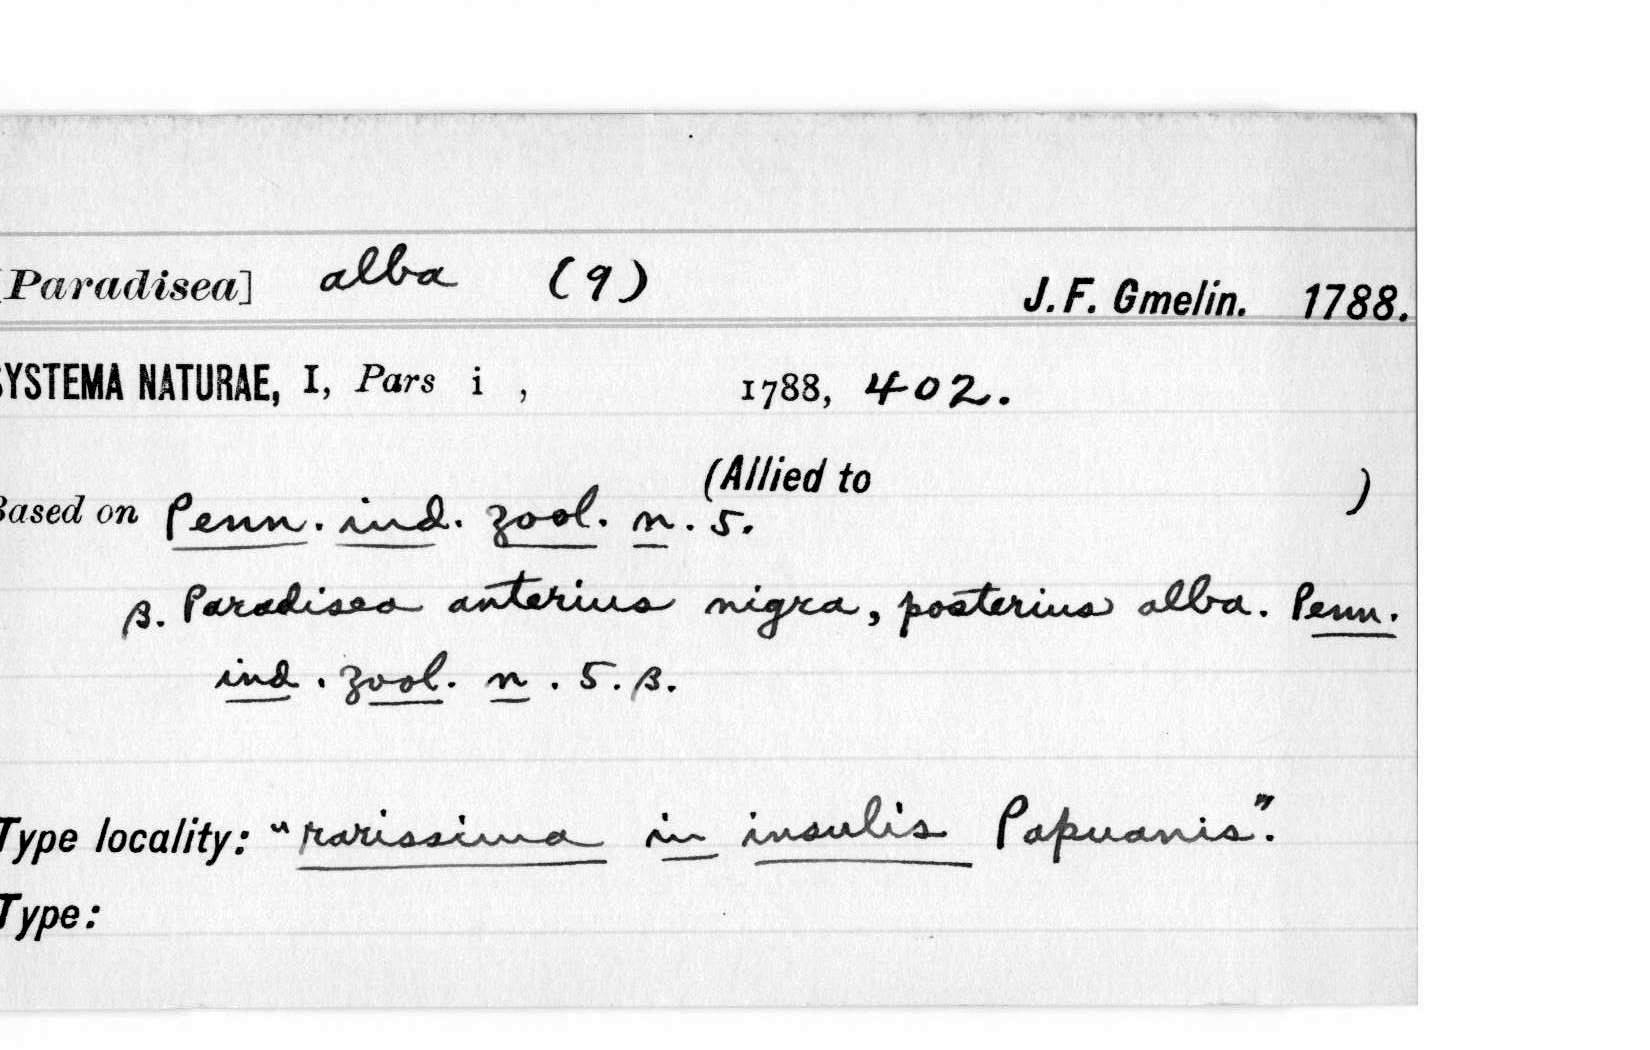 [Paradisea] alba (9) J. F. Gmelin. 1788.
SYSTEMA NATURAE, I, Pars i , 1788, 402.
(Allied to )
Based on Penn. ind. zool. n. 5.
β. Paradisea anterius nigra, posterius alba. Penn.
ind. zool. n. 5. β.
Type locality: "rarissima in insulis Papuanis".
Type: